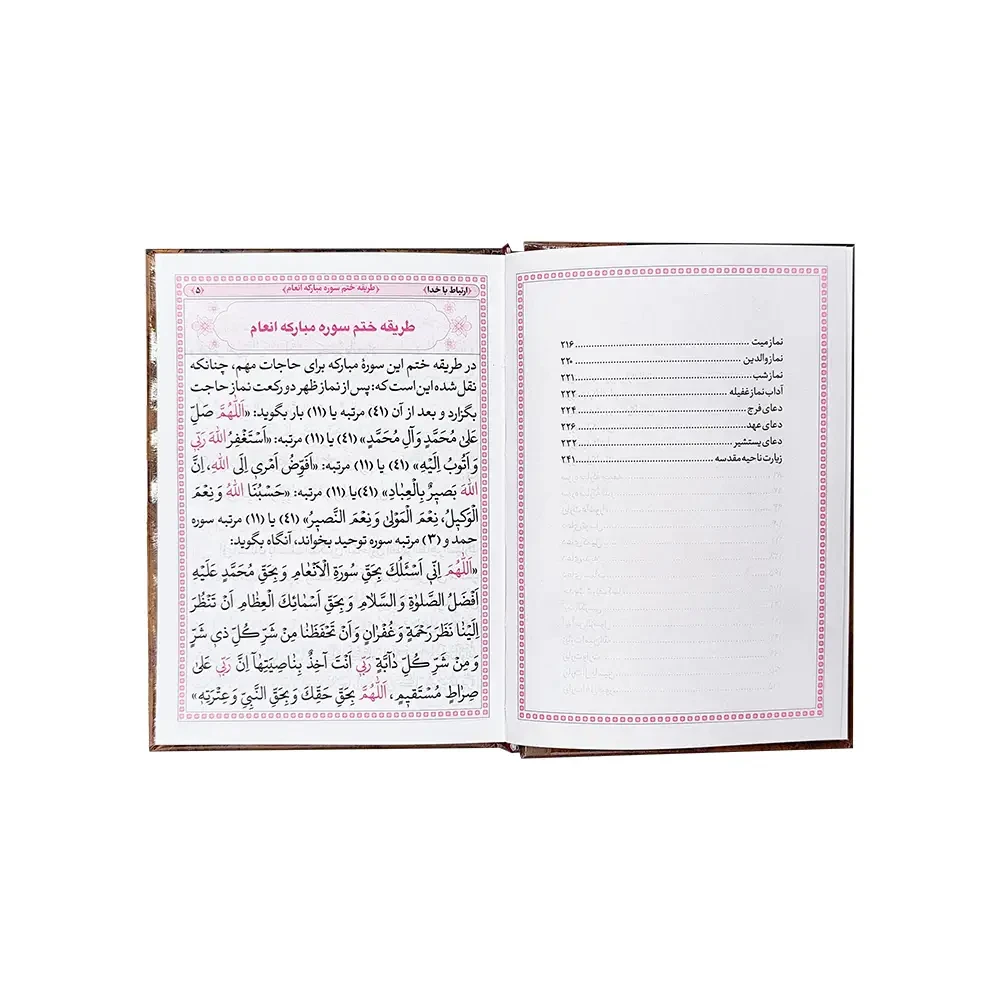 نماز میت ........................................ ۲۱۶
نماز والدین ........................................ ۲۲۰
نماز شب ........................................ ۲۲۱
آداب نماز غفیله ........................................ ۲۲۲
دعای فرج ........................................ ۲۲۴
دعای عهد ........................................ ۲۲۶
دعای یستشیر ........................................ ۲۳۲
زیارت ناحیه مقدسه ........................................ ۲۴۱
﴿ارتباط با خدا﴾ ﴿طریقه ختم سوره مبارکه انعام﴾ ﴿۵﴾
طریقه ختم سوره مبارکه انعام
در طریقه ختم این سورهٔ مبارکه برای حاجات مهم، چنانکه
نقل شده این است که: پس از نماز ظهر دو رکعت نماز حاجت
بگزارد و بعد از آن (۴۱) مرتبه یا (۱۱) بار بگوید: «اَللّٰهُمَّ صَلِّ
عَلیٰ مُحَمَّدٍ وَآلِ مُحَمَّدٍ» (۴۱) یا (۱۱) مرتبه: «اَسْتَغْفِرُ اللّٰهَ رَبّی
وَ اَتُوبُ اِلَیْهِ» (۴۱) یا (۱۱) مرتبه: «اُفَوِّضُ اَمْری اِلَی اللّٰهِ، اِنَّ
اللّٰهَ بَصیرٌ بِالْعِبادِ» (۴۱)یا (۱۱) مرتبه: «حَسْبُنَا اللّٰهُ وَ نِعْمَ
الْوَکیلُ، نِعْمَ الْمَوْلیٰ وَ نِعْمَ النَّصیرُ» (۴۱) یا (۱۱) مرتبه سوره
حمد و (۳) مرتبه سوره توحید بخواند، آنگاه بگوید:
«اَللّٰهُمَّ اِنّی اَسْئَلُكَ بِحَقِّ سُورَةِ الْاَنْعٰامِ وَ بِحَقِّ مُحَمَّدٍ عَلَیْهِ
اَفْضَلُ الصَّلوٰةِ وَ السَّلٰامِ وَ بِحَقِّ اَسْمٰائِكَ الْعِظٰامِ اَنْ تَنْظُرَ
اِلَیْنٰا نَظَرَ رَحْمَةٍ وَ غُفْرٰانٍ وَ اَنْ تَحْفَظَنٰا مِنْ شَرِّ کُلِّ ذی شَرٍّ
وَ مِنْ شَرِّ کُلِّ دٰآبَّةٍ رَبّی اَنْتَ آخِذٌ بِنٰاصِیَتِهٰا اِنَّ رَبّی عَلیٰ
صِرٰاطٍ مُسْتَقیمٍ، اَللّٰهُمَّ بِحَقِّ حَقِّكَ وَ بِحَقِّ النَّبِیِّ وَ عِتْرَتِهِ»